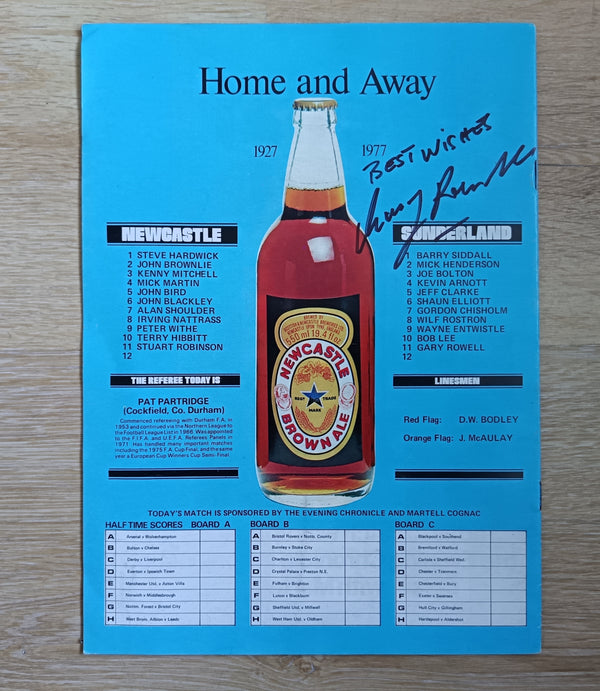 Home and Away
1927
1977
BEST WISHES
NEWCASTLE
1 STEVE HARDWICK
2 JOHN BROWNLIE
3 KENNY MITCHELL
4 MICK MARTIN
5 JOHN BIRD
6 JOHN BLACKLEY
7 ALAN SHOULDER
8 IRVING NATTRASS
9 PETER WITHE
10 TERRY HIBBITT
11 STUART ROBINSON
12
SUNDERLAND
1 BARRY SIDDALL
2 MICK HENDERSON
3 JOE BOLTON
4 KEVIN ARNOTT
5 JEFF CLARKE
6 SHAUN ELLIOTT
7 GORDON CHISHOLM
8 WILF ROSTRON
9 WAYNE ENTWISTLE
10 BOB LEE
11 GARY ROWELL
12
BREWED BY
550 ml 19.4 fl oz
NEWCASTLE
REGD TRADE
MARK
BROWN ALE
THE REFEREE TODAY IS
PAT PARTRIDGE
(Cockfield, Co. Durham)
Commenced refereeing with Durham F.A. in
1953 and continued via the Northern League to
the Football League List in 1966. Was appointed
to the F.I.F.A. and U.E.F.A. Referees Panels in
1971. Has handled many important matches
including the 1975 F.A. Cup Final, and the same
year a European Cup Winners Cup Semi-Final.
LINESMEN
Red Flag: D.W. BODLEY
Orange Flag: J. McAULAY
TODAY'S MATCH IS SPONSORED BY THE EVENING CHRONICLE AND MARTELL COGNAC
HALF TIME SCORES BOARD A
A Arsenal v Wolverhampton
B Bolton v Chelsea
C Derby v Liverpool
D Everton v Ipswich Town
E Manchester Utd. v Aston Villa
F Norwich v Middlesbrough
G Nottm. Forest v Bristol City
H West Brom. Albion v Leeds
BOARD B
A Bristol Rovers v Notts. County
B Burnley v Stoke City
C Charlton v Leicester City
D Crystal Palace v Preston N.E.
E Fulham v Brighton
F Luton v Blackburn
G Sheffield Utd. v Millwall
H West Ham Utd. v Oldham
BOARD C
A Blackpool v Southend
B Brentford v Watford
C Carlisle v Sheffield Wed.
D Chester v Tranmere
E Chesterfield v Bury
F Exeter v Swansea
G Hull City v Gillingham
H Hartlepool v Aldershot